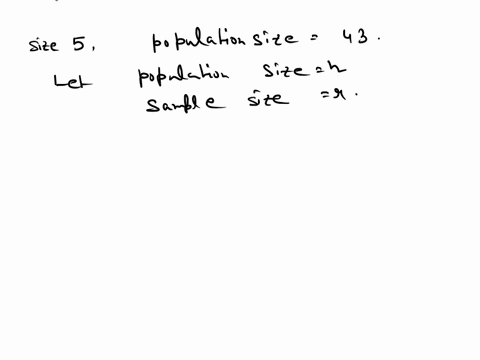 size 5, population size = 43.
Let population size = n
sample size = r.